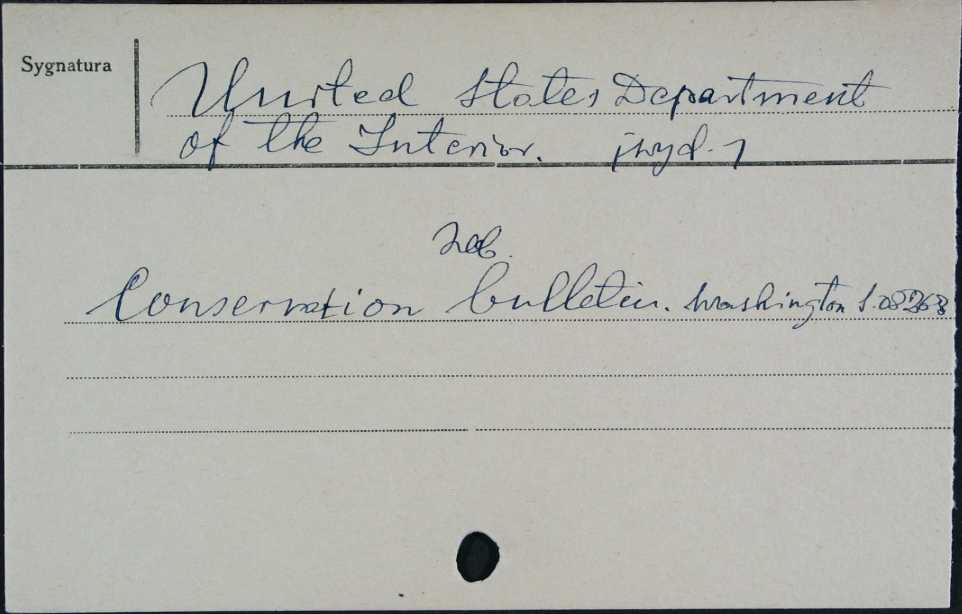 Sygnatura
United States Department
of the Interior. [wyd.]
zob.
Conservation bulletin. Washington